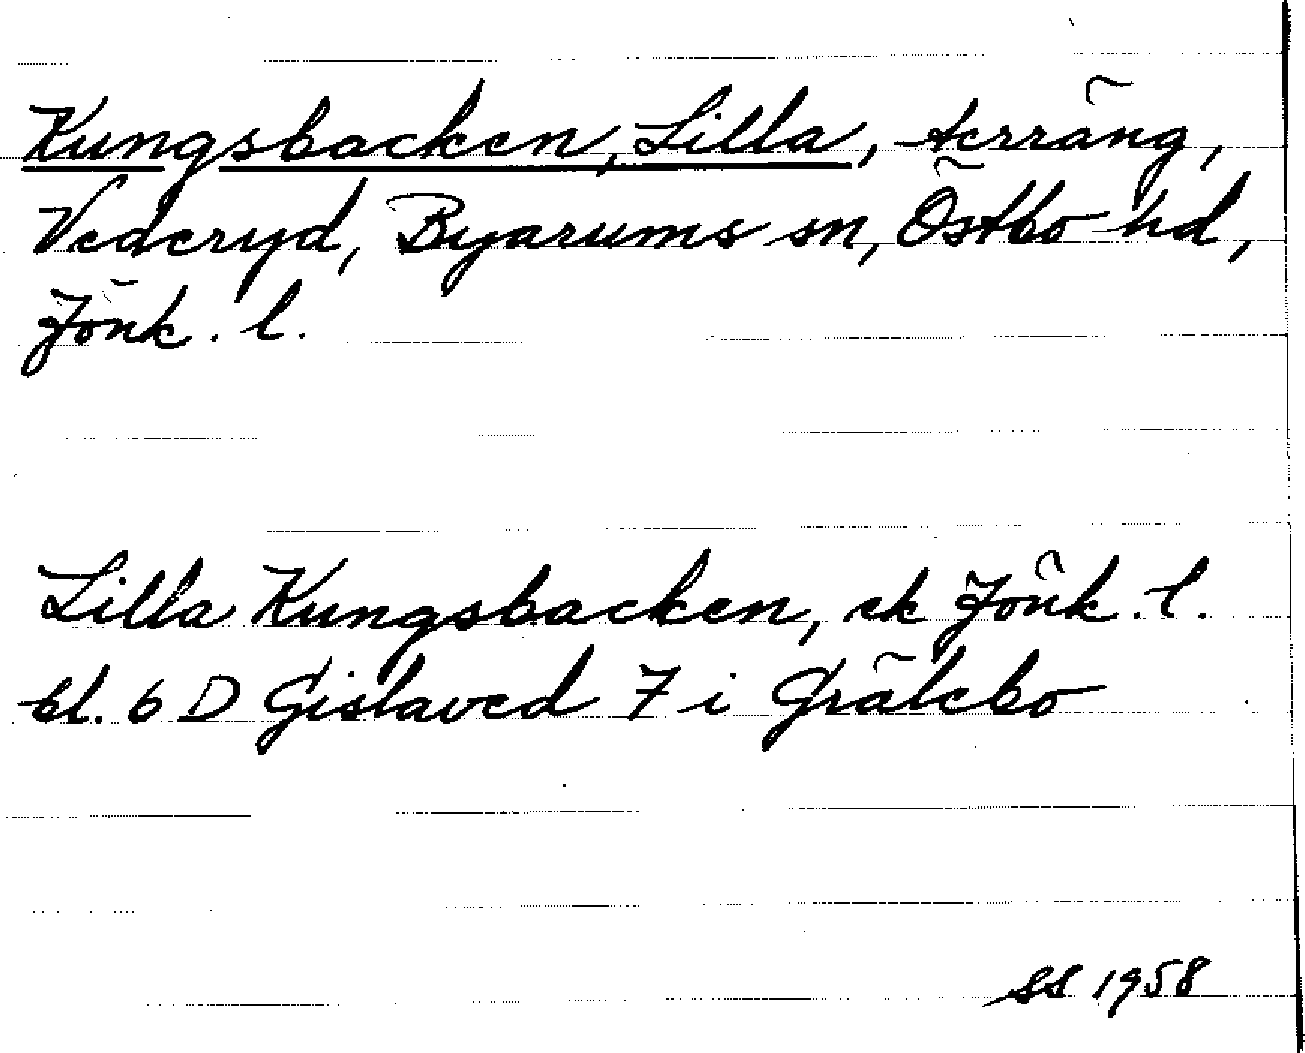 Kungsbacken, Lilla, terräng,
Vederyd, Byarums sn, Östbo hd,
Jönk. l.
Lilla Kungsbacken, ek Jönk. l.
bl. 6 D Gislaved 7 i Grälebo
SS 1958